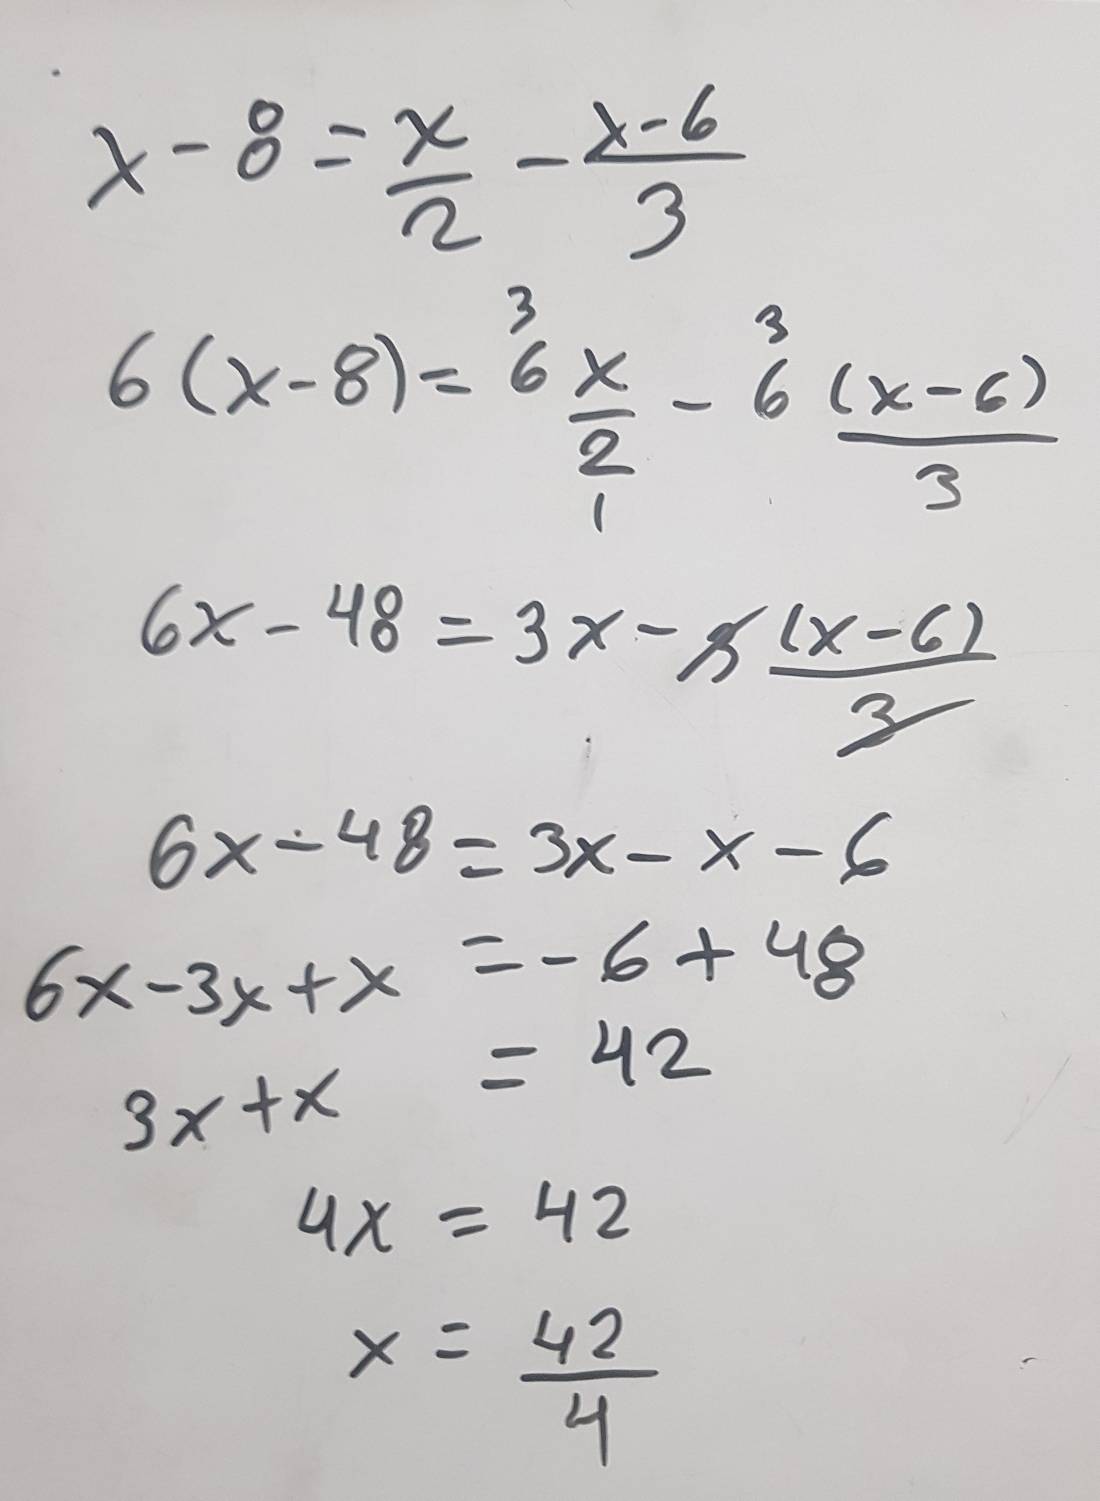 x - 8 = x/2 - x-6/3
6(x-8) = 3 6 x/2 1 - 3 6 (x-6)/3
6x - 48 = 3x - 3 (x-6)/3
6x - 48 = 3x - x - 6
6x - 3x + x = -6 + 48
3x + x = 42
4x = 42
x = 42/4